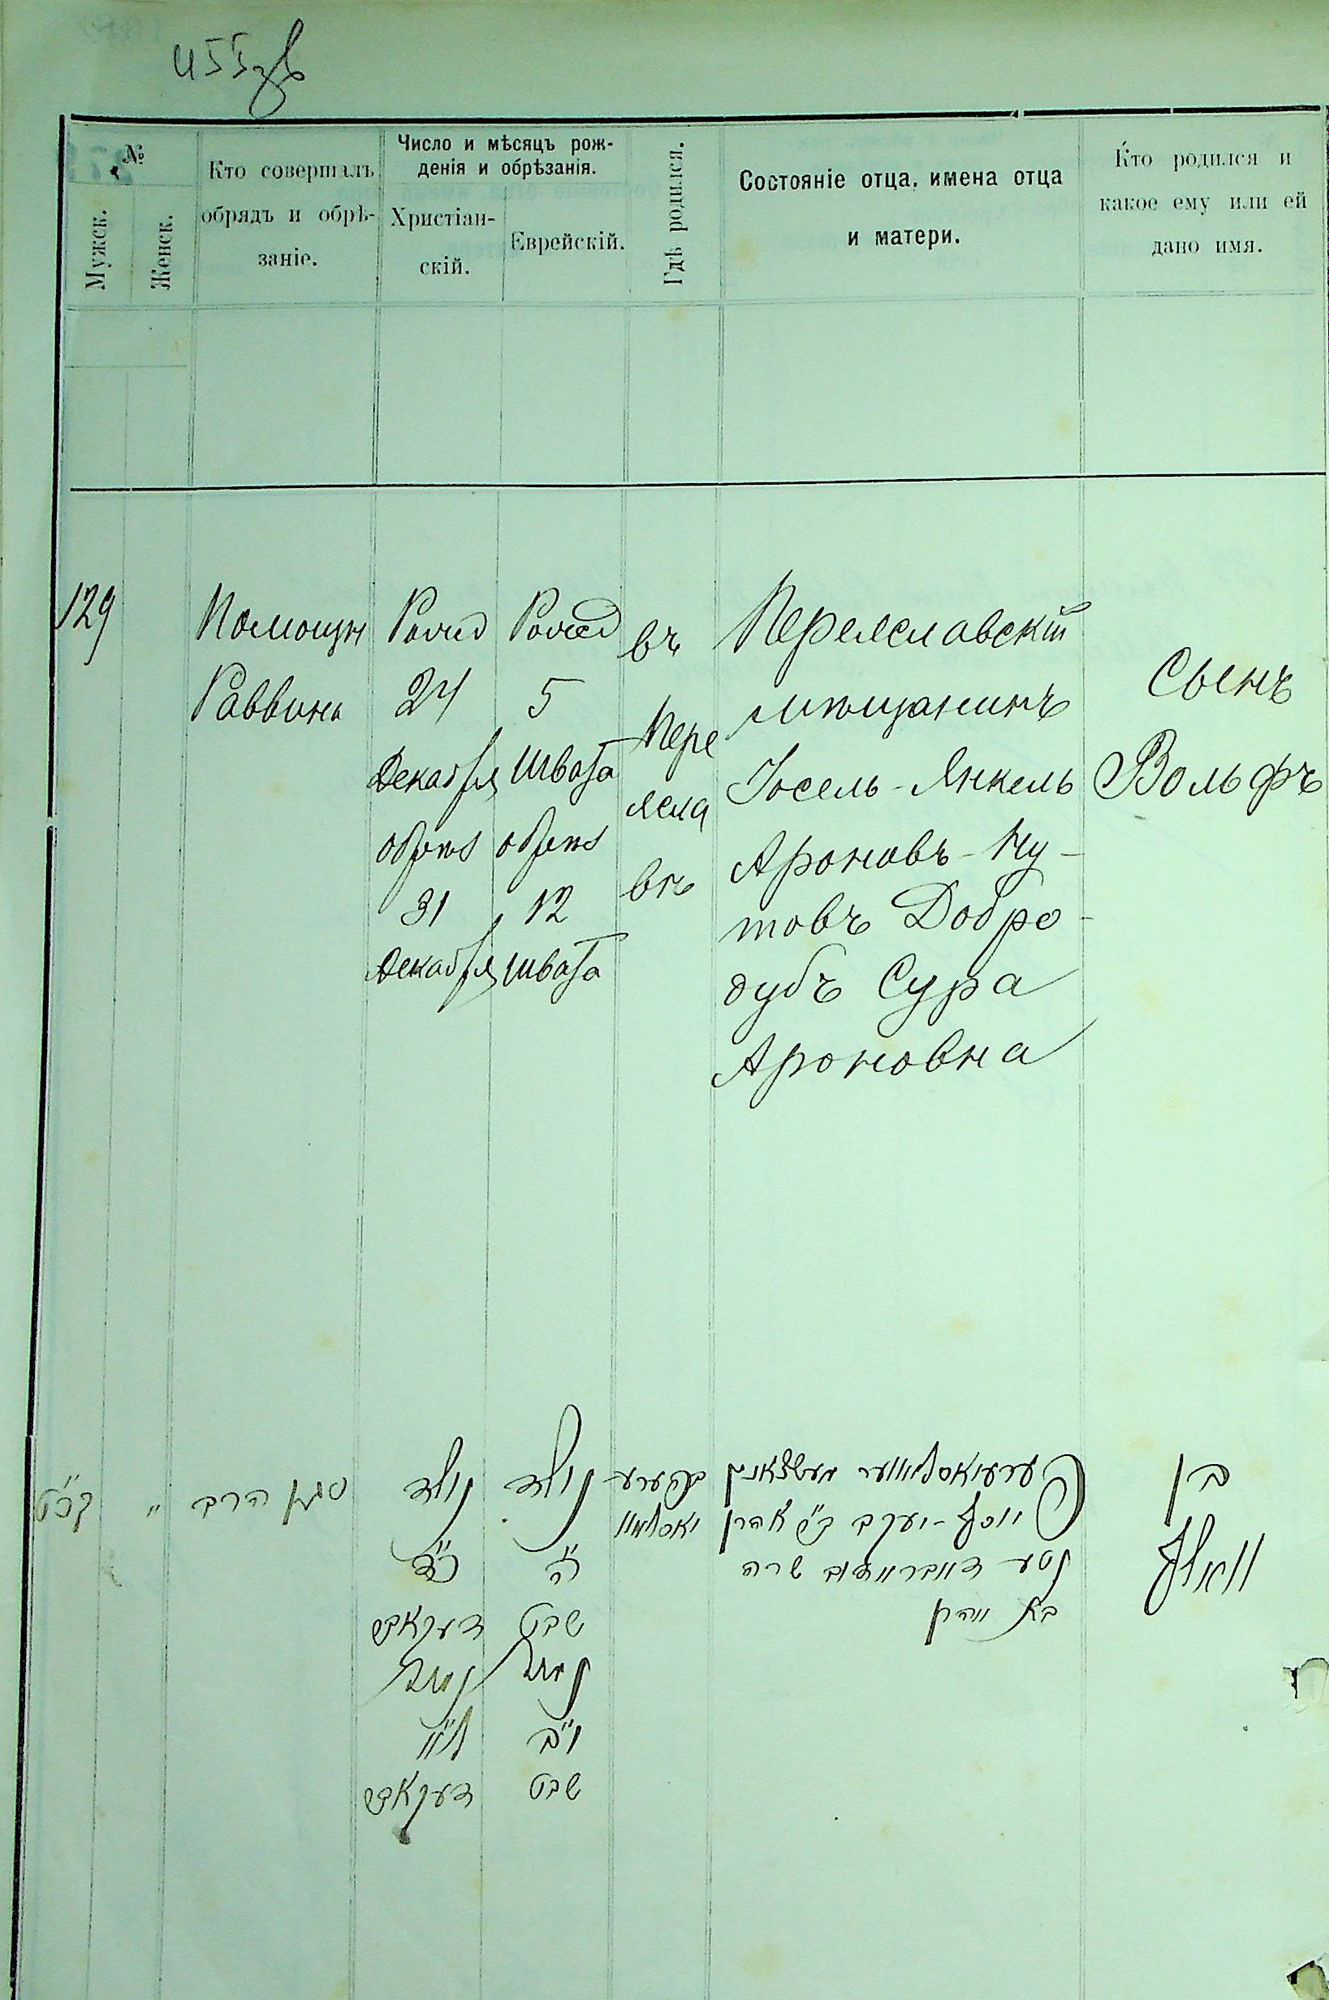 455 зв
№
Мужск.
Женск.
Кто совершалъ
обрядъ и обрѣ-
заніе.
Число и мѣсяцъ рож-
денія и обрѣзанія.
Христіан-
скій.
Еврейскій.
Гдѣ родился.
Состояніе отца, имена отца
и матери.
Кто родился и
какое ему или ей
дано имя.
129
Помощн
Раввина
Рожд
24
Декабря
обрѣз
31
Декабря
Рожд
5
Швата
обрѣз
12
Швата
въ
Пере
ясла
вѣ
Переяславскій
мѣщанинъ
Іосель-Янкель
Ароновъ-Ну-
товъ Добро-
дубъ Сура
Ароновна
Сынъ
Вольфъ
קכ״ט
״
סגן הרב
נולד
כ״ד
דעקאב׳
נמול
ל״א
דעקאב׳
נולד
ה׳
שבט
נמול
י״ב
שבט
יוסף-יעקב ב״ר אהרן
נטע דאברידוב שרה
בת אהרן
בן
וואלף